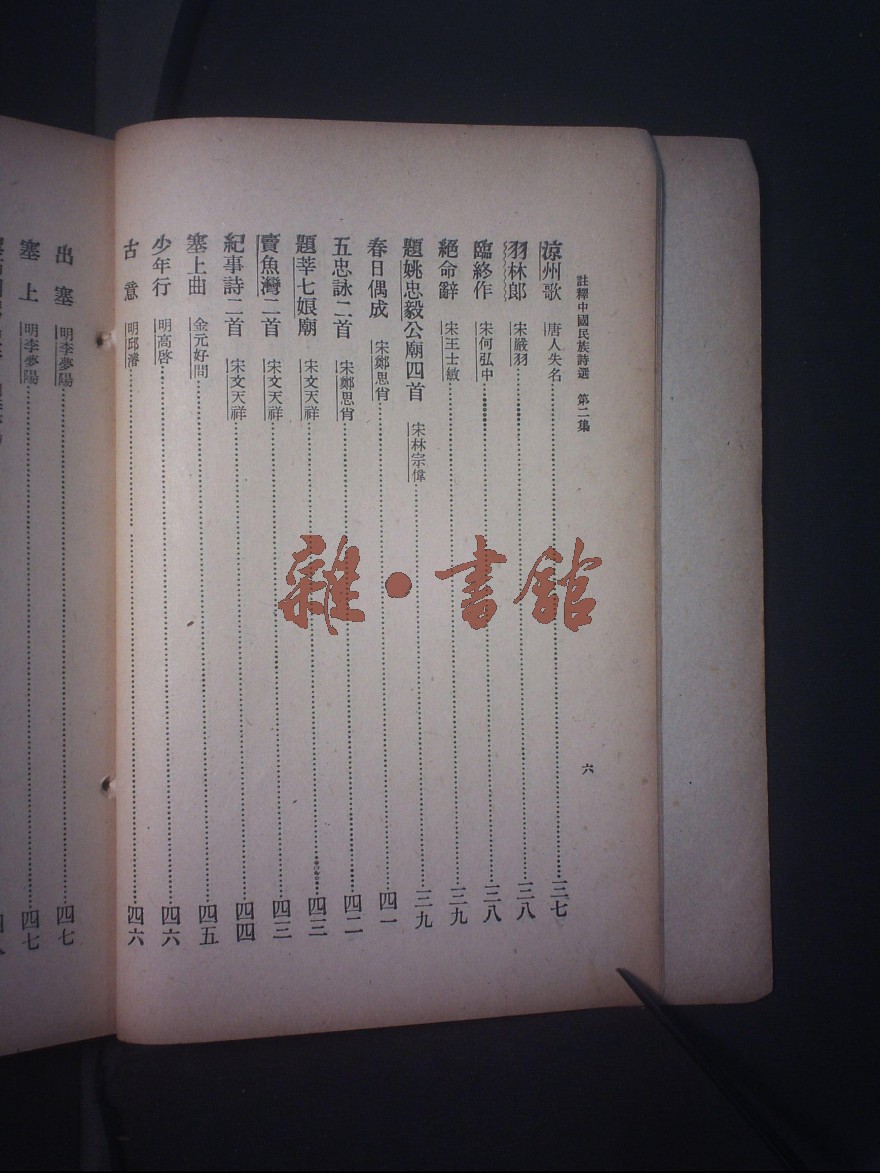 註釋中國民族詩選 第二集 六
涼州歌 唐人失名 三七
羽林郎 宋嚴羽 三八
臨終作 宋何弘中 三八
絕命辭 宋王士敏 三九
題姚忠毅公廟四首 宋林宗偉 三九
春日偶成 宋鄭思肖 四一
五忠詠二首 宋鄭思肖 四二
題莘七娘廟 宋文天祥 四三
賣魚灣二首 宋文天祥 四三
紀事詩二首 宋文天祥 四四
塞上曲 金元好問 四五
少年行 明高啓 四六
古意 明邱濬 四六
出塞 明李夢陽 四七
塞上 明李夢陽 四七
雜·書館